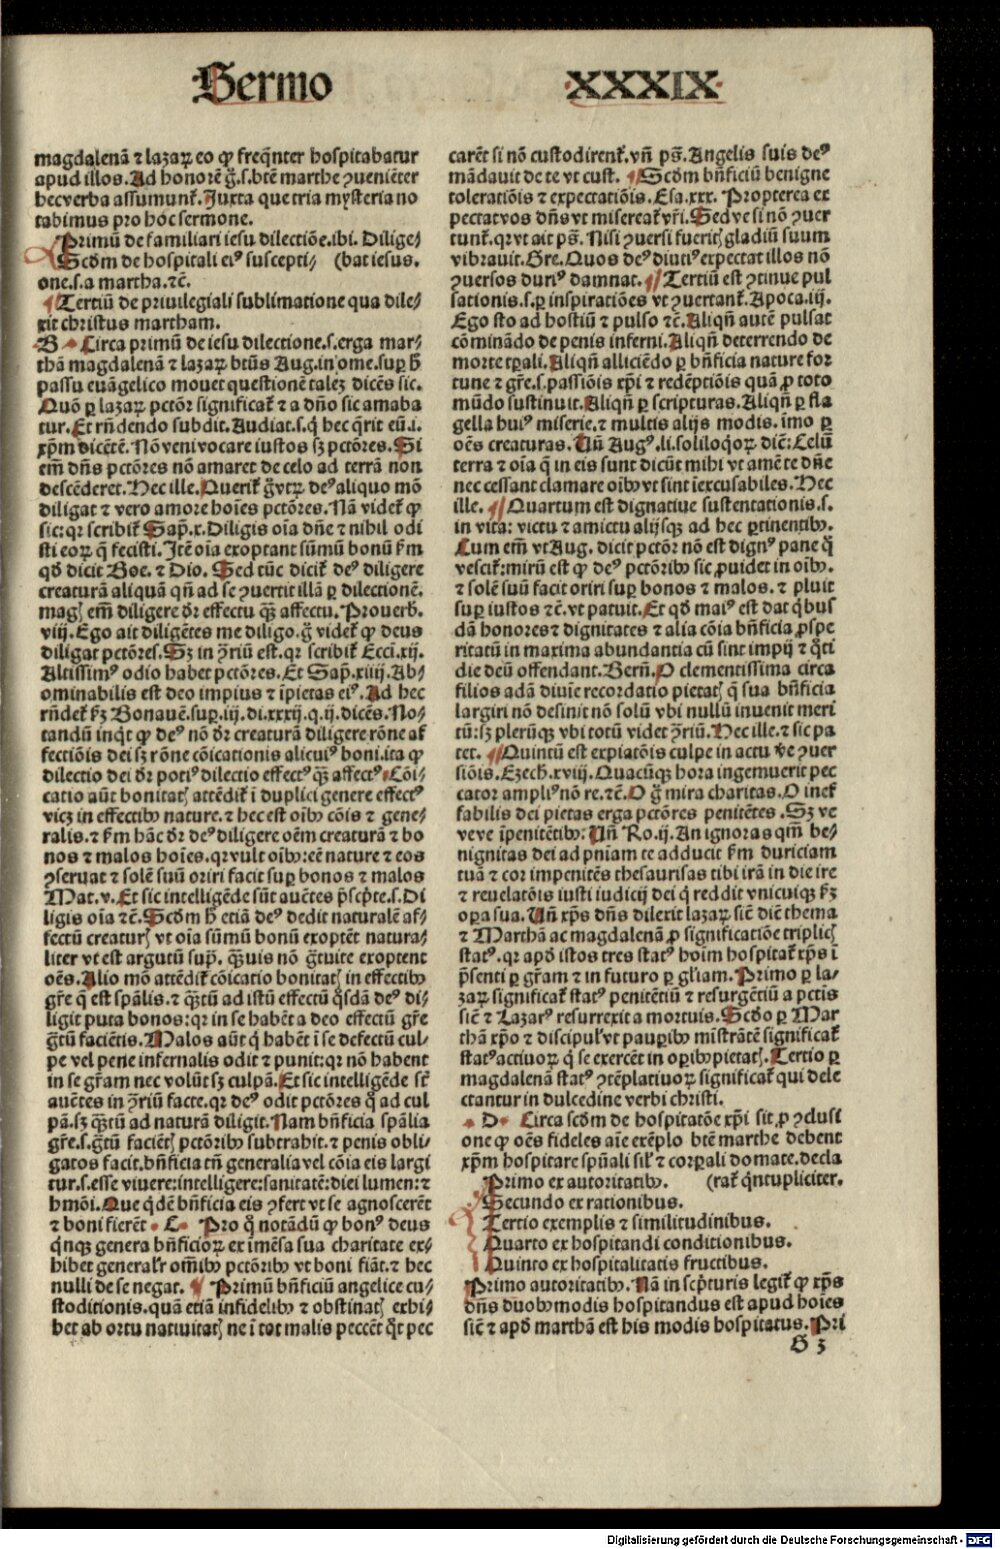 Sermo XXXIX
magdalenā ⁊ lazaꝝ eo ꝙ freq̄nter hospitabatur
apud illos. Ad honorē ḡ.s.btē marthe ꝯueniēter
hec verba assumunt᷑. Iuxta que tria mysteria no
tabimus pro hoc sermone.
Primū de familiari iesu dilectiōe.ibi. Dilige/
Scd̄m de hospitali eiꝰ suscepti/ (bat iesus.
one.s.a martha.⁊c̄.
¶ Tertiū de priuilegiali sublimatione qua dile/
xit christus martham.
B Circa primū de iesu dilectione.s.erga mar/
thā magdalenā ⁊ lazaꝝ btūs Aug.in ome.suꝑ h̄
passu euāgelico mouet questionē talez dicēs sic.
Quō ꝑ lazaꝝ pctōr significat᷑ ⁊ a dño sic amaba
tur. Et rñdendo subdit. Audiat.s.q̄ hec q̄rit eū.i.
xp̄m dicētē. Nō veni vocare iustos sꝫ pctōres. Si
em̄ dñs pctōres nō amaret de celo ad terrā non
descēderet. Hec ille. Querit᷑ g̈vtꝝ deꝰ aliquo mō
diligat ⁊ vero amore hoīes pctōres. Nā videt᷑ ꝙ
sic: qꝛ scribit᷑ Sap̄.x. Diligis oīa dñe ⁊ nihil odi
sti eoꝝ q̄ fecisti. Itē oīa exoptant sūmū bonū ẜm
qd̄ dicit Boe. ⁊ Dio. Sed tūc dicit᷑ deꝰ diligere
creaturā aliquā qn̄ ad se ꝯuertit illā ꝑ dilectionē.
magꝭ em̄ diligere dr̄ effectu qꝫ̄ affectu. Prouerb̄.
viij. Ego ait diligētes me diligo. g̈ videt᷑ ꝙ deus
diligat pctōres. Sꝫ in ꝯ̄riū est. qꝛ scribit᷑ Ecci.xij.
Altissimꝰ odio habet pctōres. Et Sap̄.xiiij. Ab/
ominabilis est deo impius ⁊ īpietas eiꝰ. Ad hec
rñdet᷑ ẜꝫ Bonauē.suꝑ.iij.di.xxxij.q.ij.dicēs. No/
tandū inq̇t ꝙ deꝰ nō dr̄ creaturā diligere rōne af
fectiōis dei sꝫ rōne cōicationis alicuiꝰ boni.ita ꝙ
dilectio dei dr̄ potiꝰ dilectio effectꝰ qꝫ̄ affectꝰ. Cōi/
catio aūt bonitatꝭ attēdit᷑ ī duplici genere effectꝰ
vicꝫ in effectibꝰ nature. ⁊ hec est oībꝰ cōis ⁊ gene/
ralis. ⁊ ẜm hāc dr̄ deꝰ diligere oēm creaturā ⁊ bo
nos ⁊ malos hoīes. qꝛ vult oībꝰ: eē nature ⁊ eos
ꝯseruat ⁊ solē suū oriri facit suꝑ bonos ⁊ malos
Mat.v. Et sic intelligēde sūt auētes p̄scp̄te.s. Di
ligis oīa ⁊c̄. Scd̄m h̄ etiā deꝰ dedit naturalē af/
fectū creaturꝭ vt oīa sūmū bonū exoptēt natura/
liter vt est argutū sup̄. qꝫ̄uis nō g̈tuite exoptent
oēs. Alio mō attēdit᷑ cōicatio bonitatꝭ in effectibꝰ
gr̄e q̄ est spālis. ⁊ qꝫ̄tū ad istū effectū q̄sdā deꝰ di/
ligit puta bonos: qꝛ in se habēt a deo effectū gr̄e
g̈tū faciētis. Malos aūt q̄ habēt ī se defectū cul/
pe vel pene infernalis odit ⁊ punit: qꝛ nō habent
in se gr̄am nec volūt sꝫ culpā. Et sic intelligēde st̄
auētes in ꝯ̄riū facte. qꝛ deꝰ odit pctōres q̄ ad cul
pā. sꝫ qꝫ̄tū ad naturā diligit. Nam bn̄ficia spālia
gr̄e.s.g̈tū faciētꝭ pctōribꝰ subtrahit. ⁊ penis obli/
gatos facit. bn̄ficia tn̄ generalia vel cōia eis largi
tur.s.esse viuere: intelligere: sanitatē: diei lumen: ⁊
hmōi. Que q̇dē bn̄ficia eis ꝯfert vt se agnoscerēt
⁊ boni fierēt C Pro q̄ notādū ꝙ bonꝰ deus
q̇nqꝫ genera bn̄ficioꝝ ex imēsa sua charitate ex/
hibet general'r om̄ibꝰ pctōribꝰ vt boni fiāt. ⁊ hec
nulli de se negat. ¶ Primū bn̄ficiū angelice cu/
stoditionis. quā etiā infidelibꝰ ⁊ obstinatꝭ exhi/
bet ab ortu natiuitatꝭ ne ī tot malis peccēt q̄t pec
carēt si nō custodirent᷑. vn̄ ps̄. Angelis suis deꝰ
mādauit de te vt cust. ¶ Scd̄m bn̄ficiū benigne
toleratiōis ⁊ expectatiōis. Esa.xxx. Propterea ex
pectat vos dñs vt misereat᷑ vr̄i. Sed ve si nō ꝯuer
tunt᷑. qꝛ vt ait ps̄. Nisi ꝯuersi fueritꝭ gladiū suum
vibrauit. Gre. Quos deꝰ diutiꝰ expectat illos nō
ꝯuersos duriꝰ damnat. ¶ Tertiū est ꝯtinue pul
sationis.s.ꝑ inspiratiōes vt ꝯuertant᷑. Apoca.iij.
Ego sto ad hostiū ⁊ pulso ⁊c̄. Aliqn̄ autē pulsat
cōminādo de penis inferni. Aliqn̄ deterrendo de
morte tꝑali. Aliqn̄ alliciēdo ꝑ bn̄ficia nature for
tune ⁊ gr̄e.s.passiōis xp̄i ⁊ redēptiōis quā ꝓ toto
mūdo sustinuit. Aliqn̄ ꝑ scripturas. Aliqn̄ ꝑ fla
gella huiꝰ miserie. ⁊ multis alijs modis. īmo ꝑ
oēs creaturas. Vn̄ Augꝰ.li.soliloqoꝝ diē: Celū
terra ⁊ oīa q̄ in eis sunt dicūt mihi vt amē te dñe
nec cessant clamare oībꝰ vt sint īexcusabiles. Hec
ille. ¶ Quartum est dignatiue sustentationis.s.
in vita: victu ⁊ amictu alijsqꝫ ad hec ꝑtinentibꝰ.
Cum em̄ vt Aug. dicit pctōr nō est dignꝰ pane q̄
vescit᷑: mirū est ꝙ deꝰ pctōribꝰ sic ꝓuidet in oībꝰ.
⁊ solē suū facit oriri suꝑ bonos ⁊ malos. ⁊ pluit
suꝑ iustos ⁊c̄. vt patuit. Et qd̄ maiꝰ est dat q̇bus
dā honores ⁊ dignitates ⁊ alia cōia bn̄ficia ꝓspe
ritatū in maxima abundantia cū sint impij ⁊ q̄ti
die deū offendant. Bern̄. O clementissima circa
filios adā diuīe recordatio pietatꝭ q̄ sua bn̄ficia
largiri nō desinit nō solū vbi nullū inuenit meri
tū: sꝫ plerūqꝫ vbi totū videt ꝯ̄riū. Hec ille. ⁊ sic pa
tet. ¶ Quintū est expiatōis culpe in actu ṽe ꝯuer
siōis. Ezech.xviij. Quacūqꝫ hora ingemuerit pec
cator ampliꝰ nō re.⁊c̄. O g̈ mira charitas. O inef
fabilis dei pietas erga pctōres penitētes. Sꝫ ve
ve ve īpenitētibꝰ: Vn̄ Ro.ij. An ignoras qm̄ be/
nignitas dei ad pn̄iam te adducit ẜm duriciam
tuā ⁊ cor impenitēs thesaurisas tibi irā in die ire
⁊ reuelatōis iusti iudicij dei q̄ reddit vnicuiqꝫ ẜꝫ
oꝑa sua. Vn̄ xp̄s dñs dilexit lazaꝝ sic̄ diē thema
⁊ Marthā ac magdalenā ꝓ significatiōe triplicꝭ
statꝰ. qꝛ apd̄ istos tres statꝰ hoīm hospitat᷑ xp̄s ī
p̄senti ꝑ gr̄am ⁊ in futuro ꝑ gl'iam. Primo ꝑ la/
zaꝝ significat᷑ statꝰ penitētiū ⁊ resurgētiū a pctis
sic̄ ⁊ Lazarꝰ resurrexit a mortuis. Scd̄o ꝑ Mar
thā xp̄o ⁊ discipul' vt pauꝑibꝰ mīstrātē significat᷑
statꝰ actiuoꝝ q̄ se exercēt in oꝑibꝰ pietatꝭ. Tertio ꝑ
magdalenā statꝰ ꝯtēplatiuoꝝ significat᷑ qui dele
ctantur in dulcedine verbi christi.
D Circa scd̄m de hospitatōe xp̄i sit ꝓ ꝯclusi
one ꝙ oēs fideles aīe exēplo btē marthe debent
xp̄m hospitare spūali sil' ⁊ corꝑali domate. decla
Primo ex autoritatibꝰ. (rat᷑ q̇ntupliciter.
Secundo ex rationibus.
Tertio exemplis ⁊ similitudinibus.
Quarto ex hospitandi conditionibus.
Quinto ex hospitalitatis fructibus.
Primo autoritatibꝰ. Nā in scp̄turis legit᷑ ꝙ xp̄s
dñs duobꝰ modis hospitandus est apud hoīes
sic̄ ⁊ apd̄ marthā est his modis hospitatus. Pri
G 3
Digitalisierung gefördert durch die Deutsche Forschungsgemeinschaft - DFG